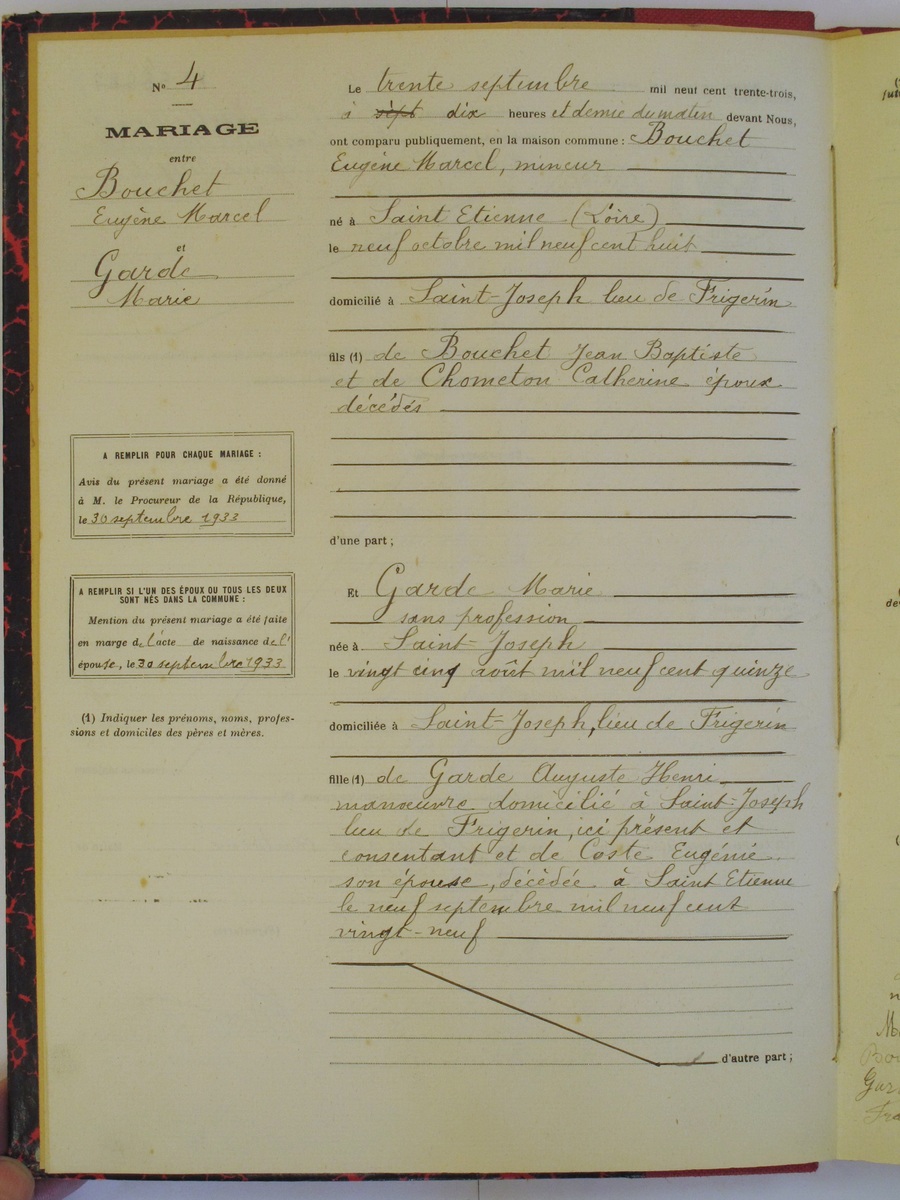 N° 4
MARIAGE
entre
Bouchet
Eugène Marcel
et
Garde
Marie
A REMPLIR POUR CHAQUE MARIAGE :
Avis du présent mariage a été donné
à M. le Procureur de la République,
le 30 septembre 1933
A REMPLIR SI L'UN DES ÉPOUX OU TOUS LES DEUX
SONT NÉS DANS LA COMMUNE :
Mention du présent mariage a été faite
en marge de l'acte de naissance de l'
épouse, le 30 septembre 1933
(1) Indiquer les prénoms, noms, profes-
sions et domiciles des pères et mères.
Le trente septembre mil neuf cent trente-trois,
à sept dix heures et demie du matin devant Nous,
ont comparu publiquement, en la maison commune : Bouchet
Eugène Marcel, mineur
né à Saint Etienne (Loire)
le neuf octobre mil neuf cent huit
domicilié à Saint-Joseph lieu de Frigerin
fils (1) de Bouchet Jean Baptiste
et de Chometon Catherine époux
décédés
d'une part ;
Et Garde Marie
sans profession
née à Saint-Joseph
le vingt cinq août mil neuf cent quinze
domiciliée à Saint-Joseph, lieu de Frigerin
fille (1) de Garde Auguste Henri
manoeuvre domicilié à Saint-Joseph
lieu de Frigerin, ici présent et
consentant et de Coste Eugénie
son épouse, décèdée à Saint Etienne
le neuf septembre mil neuf cent
vingt-neuf
d'autre part ;